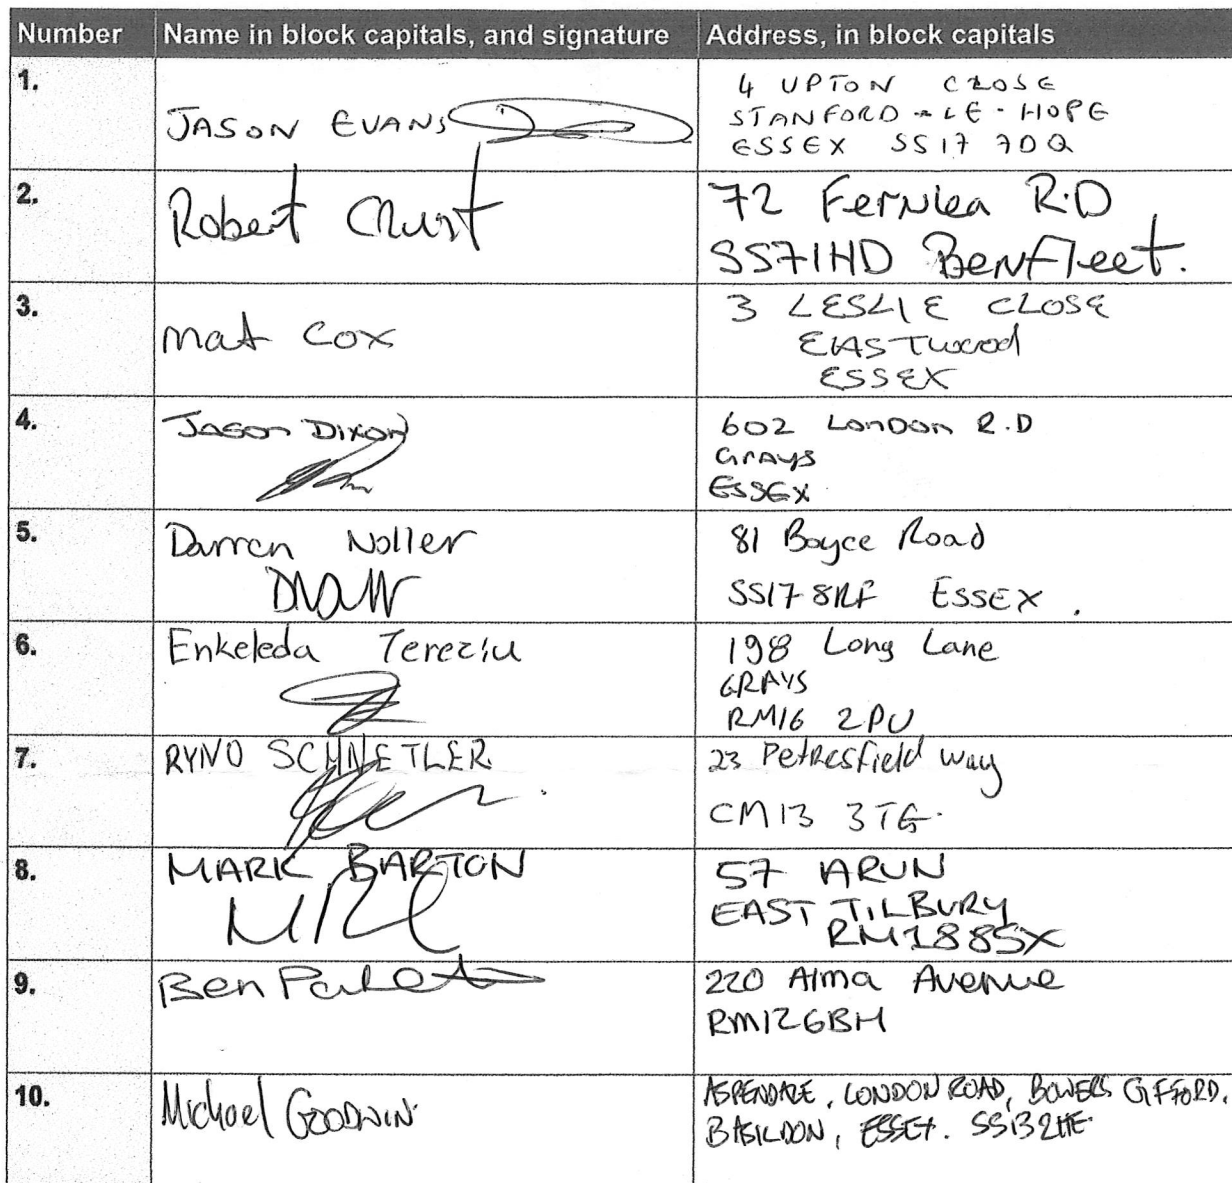 Number Name in block capitals, and signature Address, in block capitals
1.
JASON EVANS
4 UPTON CLOSE
STANFORD-LE-HOPE
ESSEX SS17 7DQ
2.
Robert
72 Fernlea R.D
SS71HD Benfleet.
3.
Mat Cox
3 LESLIE CLOSE
EASTwood
ESSEX
4.
Jason Dixon
602 London R.D
GrAys
ESSEX
5.
Darren Noller
81 Boyce Road
SS17 8RF ESSEX.
6.
Enkeleda Tereziu
198 Long Lane
GRAYS
RM16 2PU
7.
RYNO SCHNETLER
23 Way
CM13 3TG.
8.
MARK BARTON
57 ARUN
EAST TILBURY
RM188SX
9.
Ben
220 Alma Avenue
RM126BH
10.
Michael GOODWIN
LONDON ROAD, BOWERS GIFFORD,
BASILDON, SS132HE